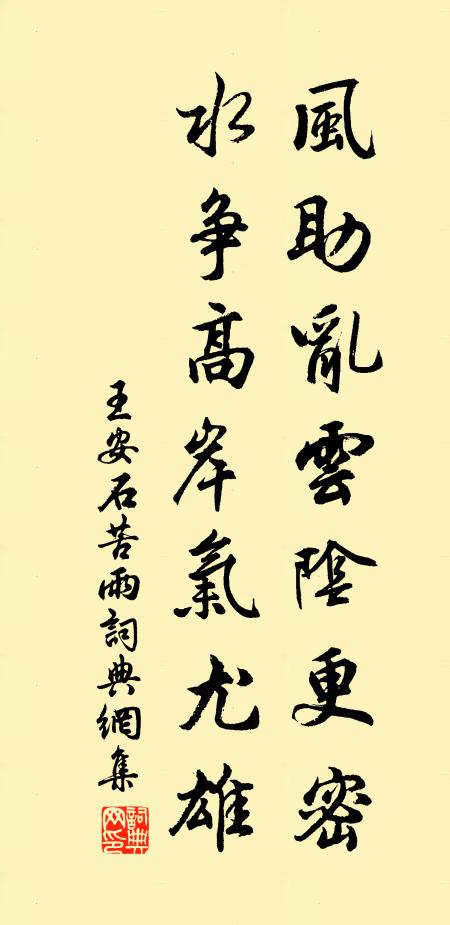 風助亂雲陰更密
水争高岸氣尤雄
王安石苦雨詞典網集
詞典网印